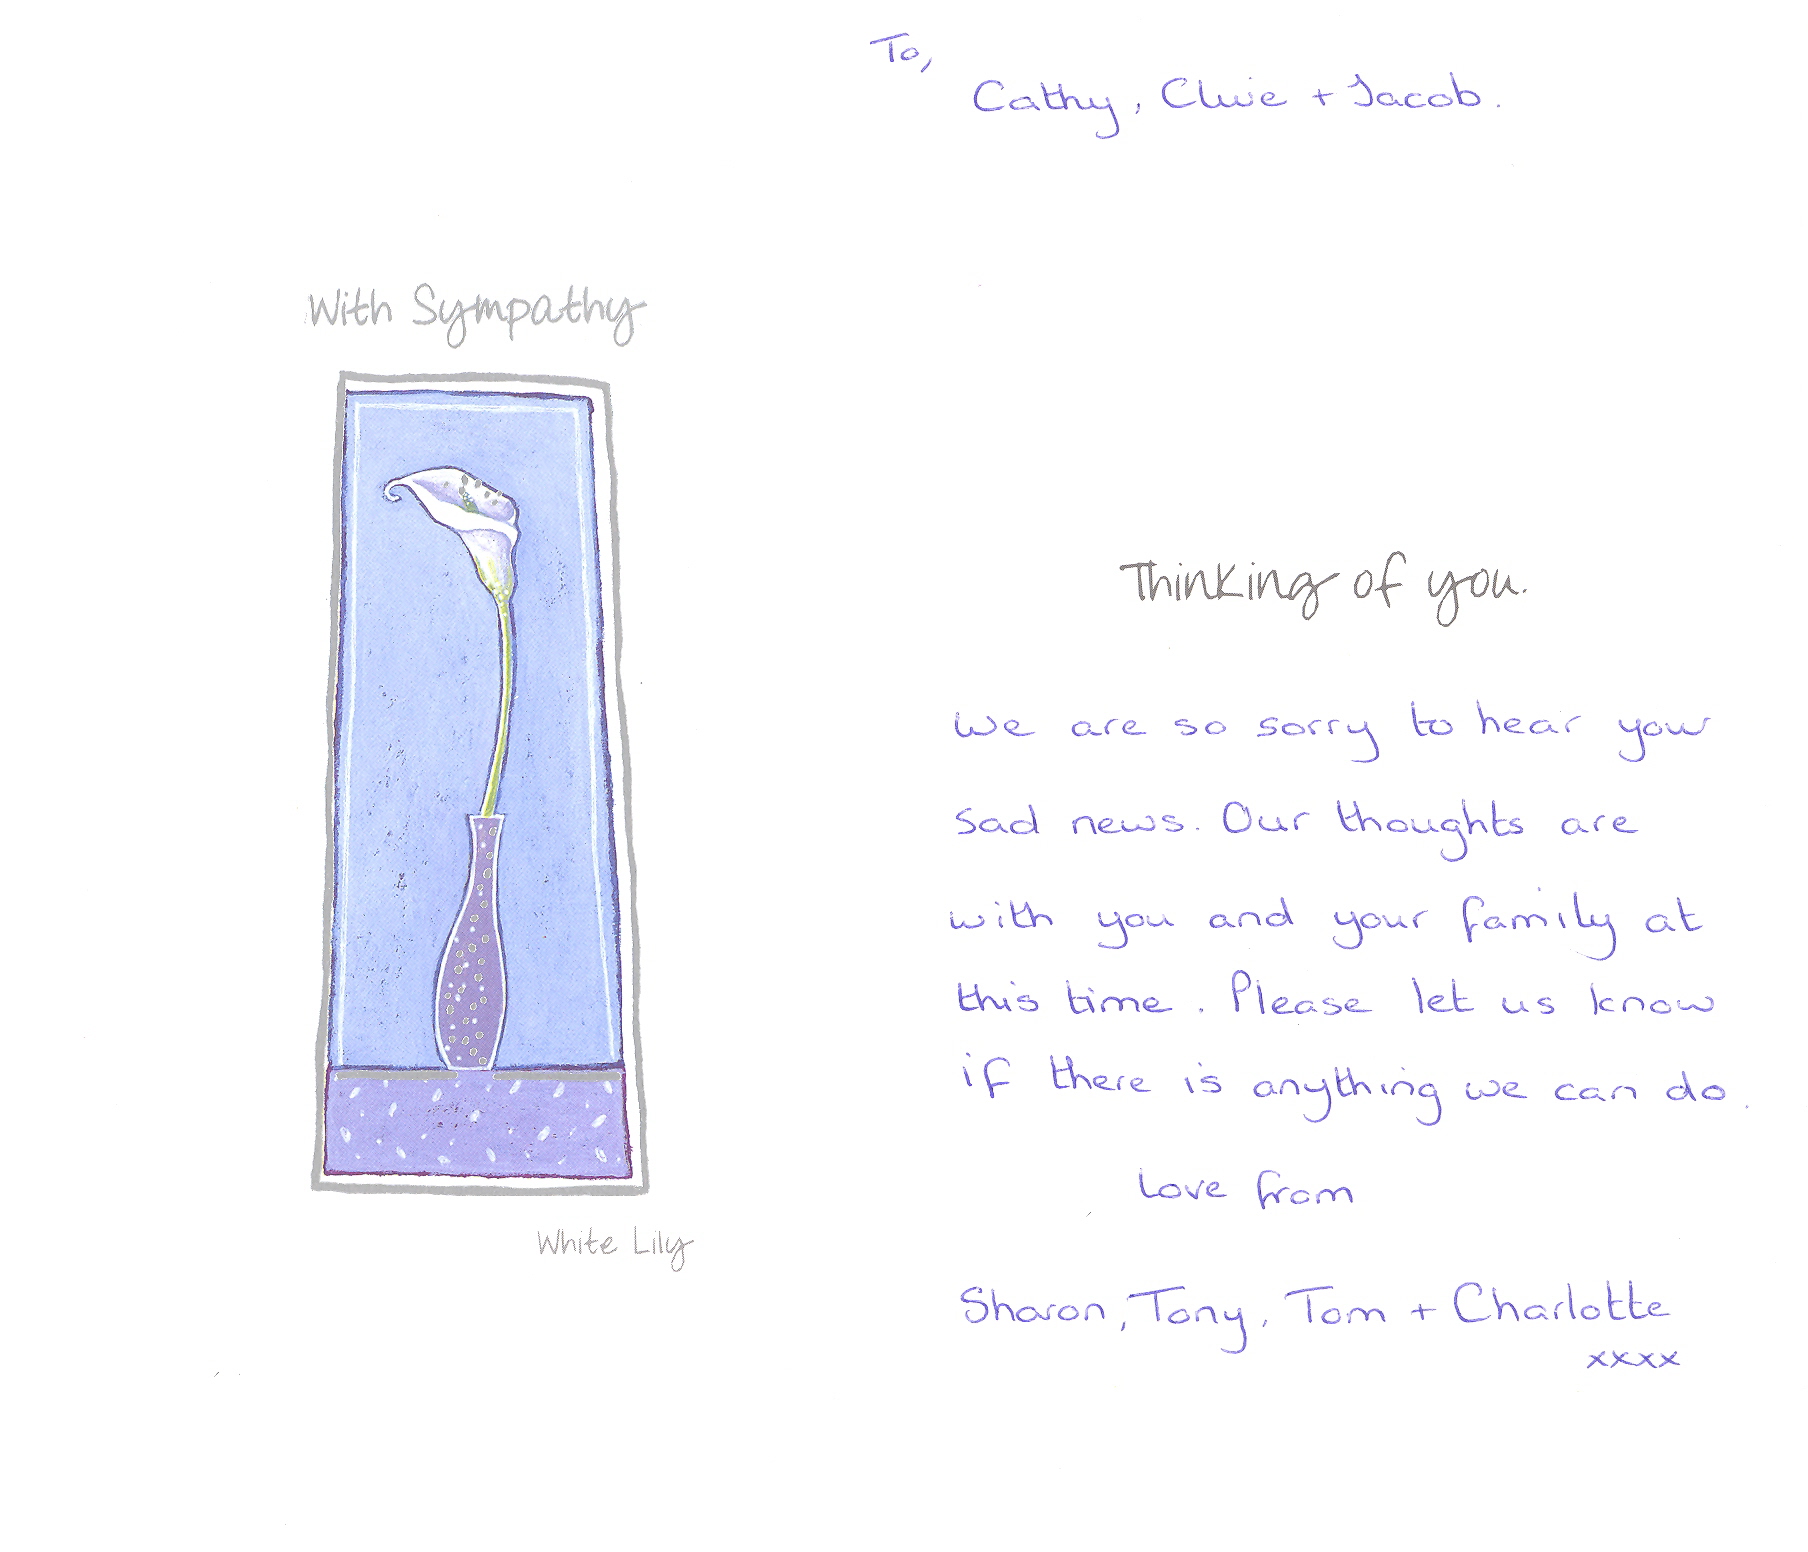 To,
Cathy, Clive + Jacob.
With Sympathy
Thinking of you.
We are so sorry to hear your
sad news. Our thoughts are
with you and your family at
this time. Please let us know
if there is anything we can do.
Love from
White Lily
Sharon, Tony, Tom + Charlotte
xxxx